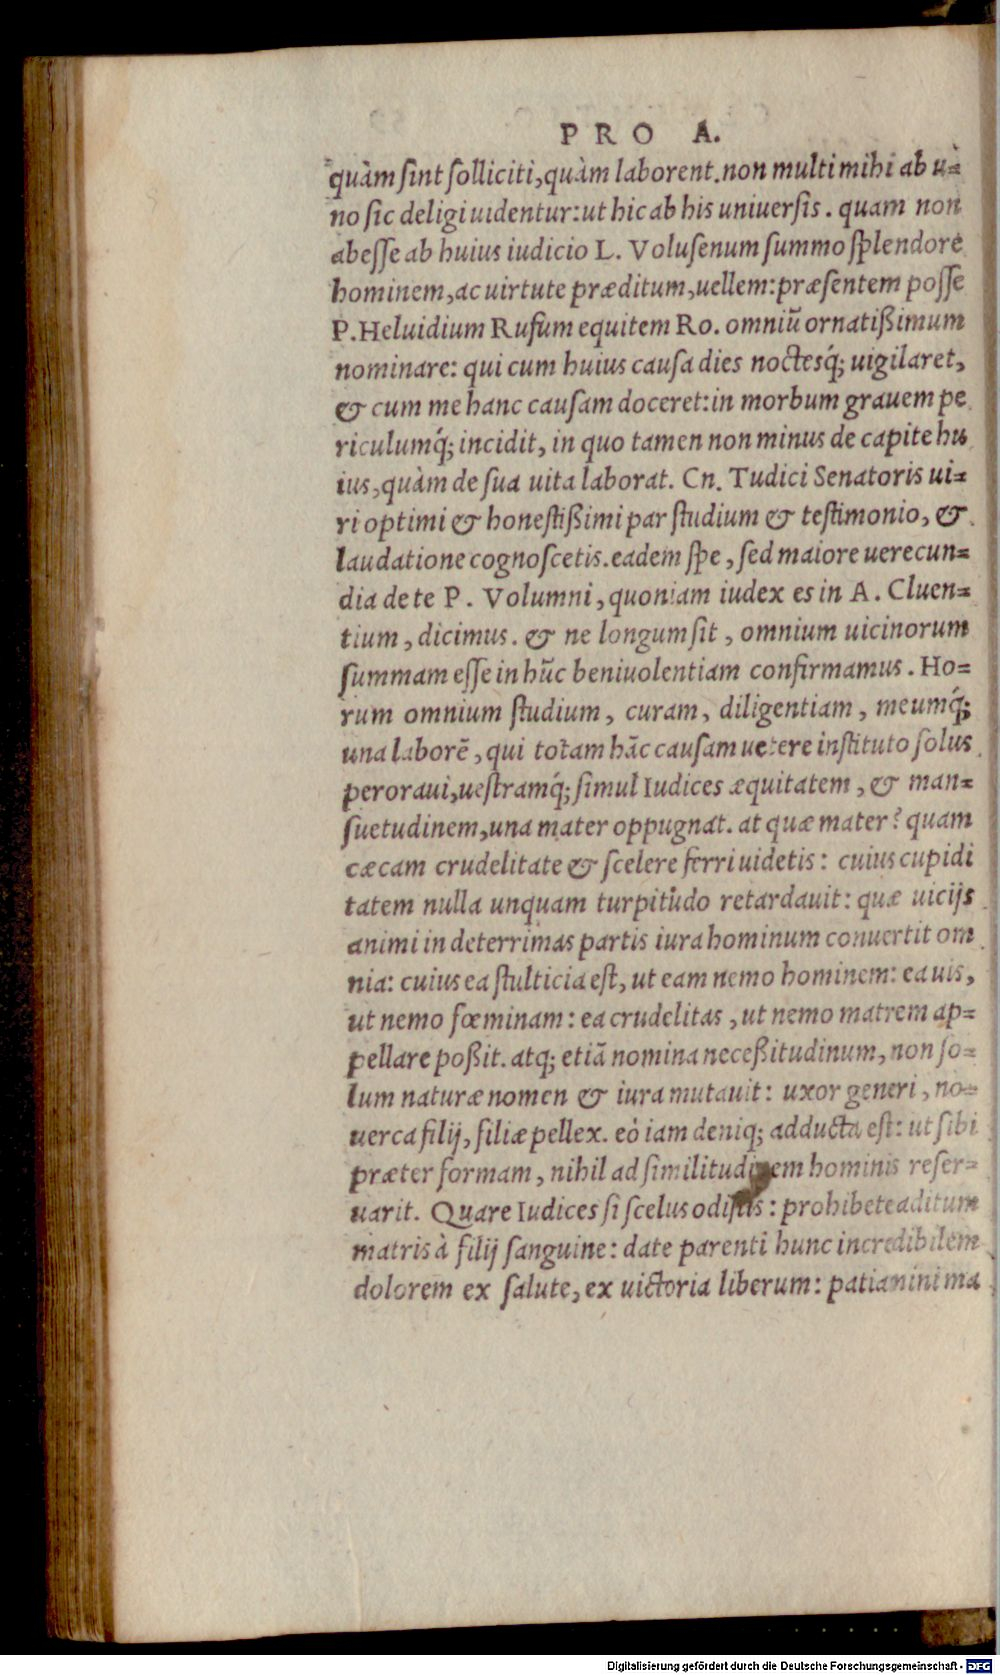 PRO A.
quàm sint solliciti, quàm laborent. non multi mihi ab u-
no sic deligi uidentur: ut hic ab his uniuersis. quam non
abesse ab huius iudicio L. Volusenum summo splendore
hominem, ac uirtute præditum, uellem: præsentem posse
P. Heluidium Rufum equitem Ro. omniũ ornatißimum
nominare: qui cum huius causa dies noctesq́; uigilaret,
& cum me hanc causam doceret: in morbum grauem pe
riculumq́; incidit, in quo tamen non minus de capite hu
ius, quàm de sua uita laborat. Cn. Tudici Senatoris ui-
ri optimi & honestißimi par studium & testimonio, &
laudatione cognoscetis. eadem spe, sed maiore uerecun-
dia de te P. Volumni, quoniam iudex es in A. Cluen-
tium, dicimus. & ne longum sit, omnium uicinorum
summam esse in hũc beniuolentiam confirmamus. Ho-
rum omnium studium, curam, diligentiam, meumq́;
una laborẽ, qui totam hãc causam uetere instituto solus
peroraui, uestramq́; simul Iudices æquitatem, & man-
suetudinem, una mater oppugnat. at quæ mater? quam
cæcam crudelitate & scelere ferri uidetis: cuius cupidi
tatem nulla unquam turpitudo retardauit: quæ uicijs
animi in deterrimas partis iura hominum conuertit om
nia: cuius ea stulticia est, ut eam nemo hominem: ea uis,
ut nemo fœminam: ea crudelitas, ut nemo matrem ap-
pellare poßit. atq; etiã nomina neceßitudinum, non so-
lum naturæ nomen & iura mutauit: uxor generi, no-
uerca filij, filiæ pellex. eò iam deniq; adducta est: ut sibi
præter formam, nihil ad similitudinem hominis reser-
uarit. Quare Iudices si scelus odistis: prohibete aditum
matris à filij sanguine: date parenti hunc incredibilem
dolorem ex salute, ex uictoria liberum: patiamini ma
Digitalisierung gefördert durch die Deutsche Forschungsgemeinschaft - DFG